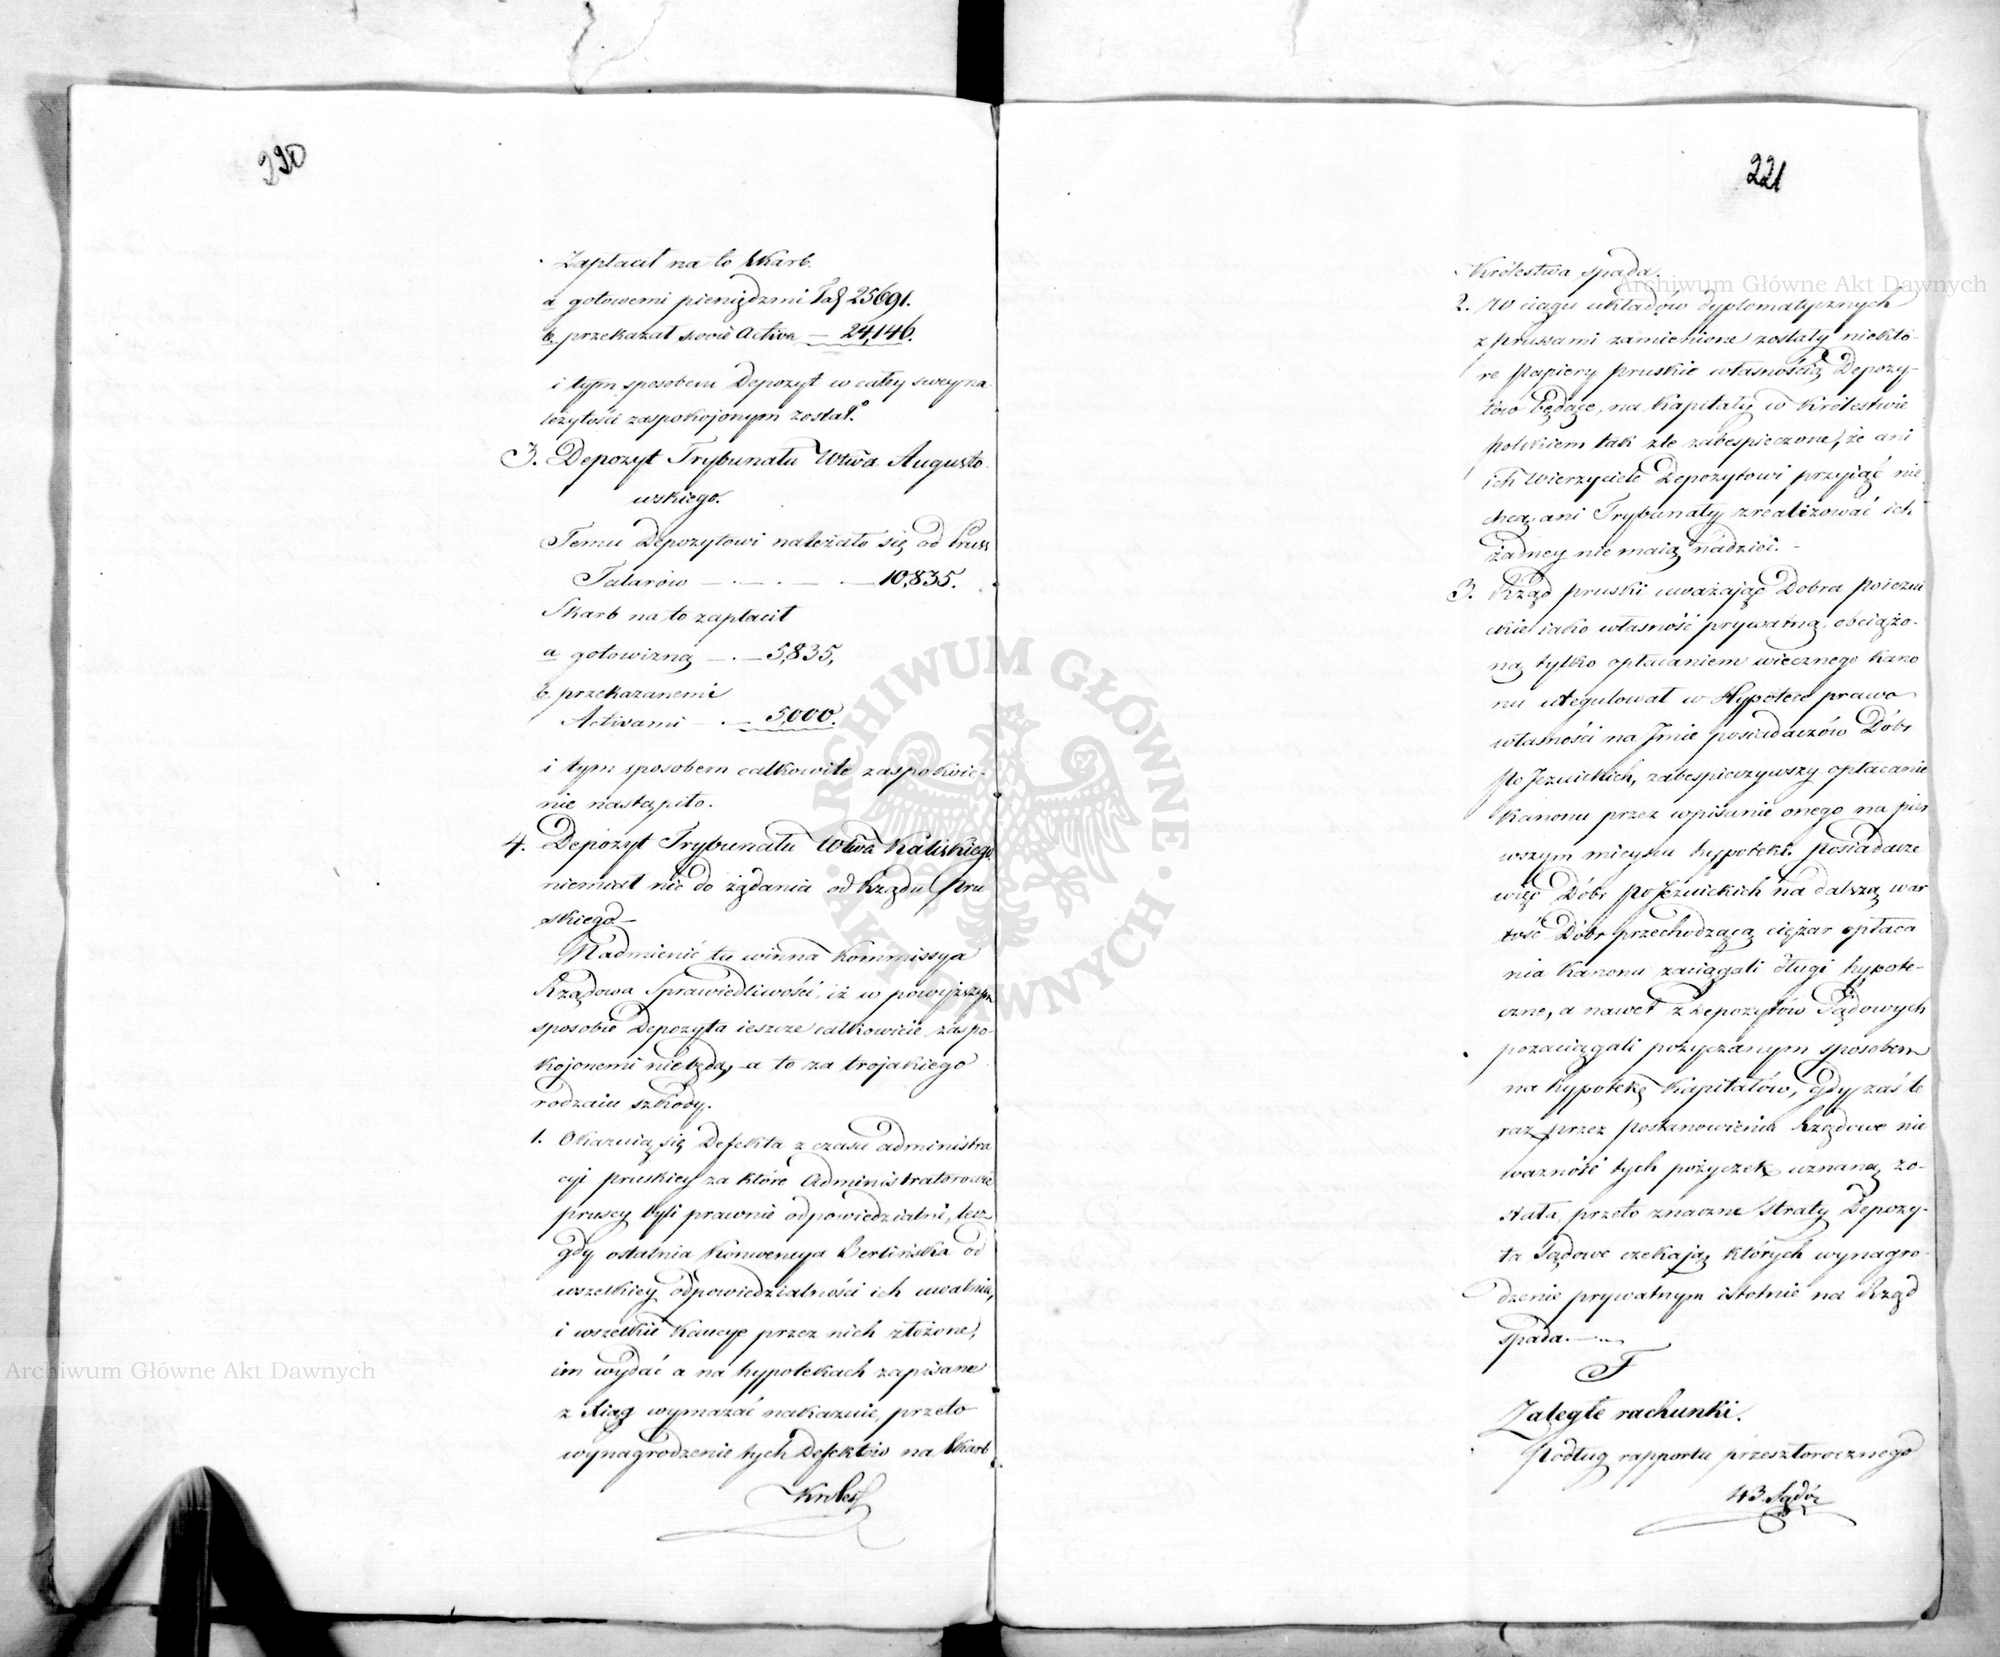 220
Zapłacił na to Skarb.
a gotowemi pieniędzmi Tal 25691.
b. przekazał swoie Activa — 24,146.
i tym sposobem Depozyt w całey swey na-
leżytości zaspokojonym został.
3. Depozyt Trybunału Wtwa Augusto-
wskiego.
Temu Depozytowi należało się od Pruss
Talarów — . — . — . — 10,835.
Skarb na to zapłacił
a gotowizną — . — 5,835,
b. przekazanemi
Activami — . — 5,000.
i tym sposobem całkowite zaspokoie-
nie nastąpiło.
4. Depozyt Trybunału Wtwa Kaliskiego
niemiał nic do żądania od Rządu Pru
skiego —
Nadmienić tu winna Kommissya
Rządowa Sprawiedliwości, iż w powyższym
sposobie Depozyta ieszcze całkowicie zaspo-
kojonemi niebędą, a to za trojakiego
rodzaiu szkody.
1. Okazuią się Defekta z czasu administra
cyi pruskiey za które Administratorowie
pruscy byli prawnie odpowiedzialni, lecz
gdy ostatnia Konwencya Berlińska od
wszelkiey odpowiedzialności ich uwalnia,
i wszelkie Kaucye przez nich złożone,
im wydać a na hypotekach zapisane
z Xiąg wymazać nakazuie, przeto
wynagrodzenie tych Defektów na Skarb
Królest
221
Królestwa spada.
2. W ciągu układów dyplomatycznych
z prusami zamienione zostały niektó-
re Papiery pruskie własnością Depozy-
tów będące, na Kapitały w Królestwie
polskiem tak źle zabespieczone, że ani
ich Wierzyciele Depozytowi przyiąć nie
chcą, ani Trybunały zrealizować ich
żadney nie maią nadziei. —
3. Rząd pruski uważaiąc Dobra Poiezui
ckie iako własność prywatną, obciążo-
ną tylko opłacaniem wiecznego Kano
nu uregulował w Hypotece prawo
własności na Jmie posiadaczów Dóbr
Po Jezuickich, zabespieczywszy opłacanie
Kanonu przez wpisanie onego na pier
wszym mieyscu hypoteki. Posiadacze
więc Dóbr Po Jezuickich na dalszą war
tość Dóbr przechodzącą ciężar opłaca
nia Kanonu zaciągali długi hypote-
czne, a nawet z Depozytów Sądowych
pozaciągali pożyczanym sposobem
na hypotekę Kapitałów, gdy zaś te
raz przez postanowienia Rządowe nie
ważność tych pożyczek uznaną zo-
stała, przeto znaczne straty Depozy-
ta Sądowe czekaią, których wynagro-
dzenie prywatnym istotnie na Rząd
spada. —
F
Zaległe rachunki.
Podług rapportu przeszłorocznego
43 Sądó
Archiwum Główne Akt Dawnych
Archiwum Główne Akt Dawnych
ARCHIWUM GŁÓWNE AKT DAWNYCH